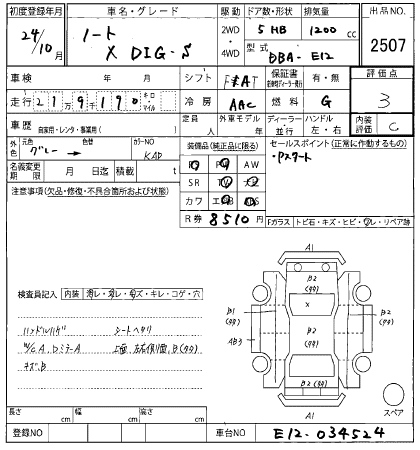 初度登録年月 車名・グレード 駆動 ドア数・形状 排気量 出品NO.
24/10月 ノート X DIG-S 2WD・4WD 5 HB 1200 cc 2507
型式 DBA- E12
車検 年 月 シフト FAT 保証書 有・無 評価点
走行 219190 キロ・マイル 冷房 AAC 燃料 G 3
車歴 自家用・レンタ・事業用( ) 定員 人 外車モデル 年 ディーラー・並行 ハンドル 左・右 内装評価 C
外色 元色 グレー → 色替 カラーNO KAD
装備品(純正品に限る) セールスポイント(正常に作動するもの)
・Pスタート
名義変更期限 月 日迄 積載 t
PS PW AW
SR TV ナビ
カワ エアB
R券 8510円
注意事項(欠品・修復・不具合箇所および状態)
Fガラス トビ石・キズ・ヒビ・ワレ・リペア跡
検査員記入 内装 スレ・ ・キズ・キレ・コゲ・穴
ハンドルハゲ シートヘタリ
キズ、B
A1
B2 (タタ)
X
B1 (タタ)
B2 (タタ)
B2 (タタ)
AB3
B2 (タタ)
A1
スペア
長さ cm 幅 cm 高さ cm
登録NO 車台NO E12-034524